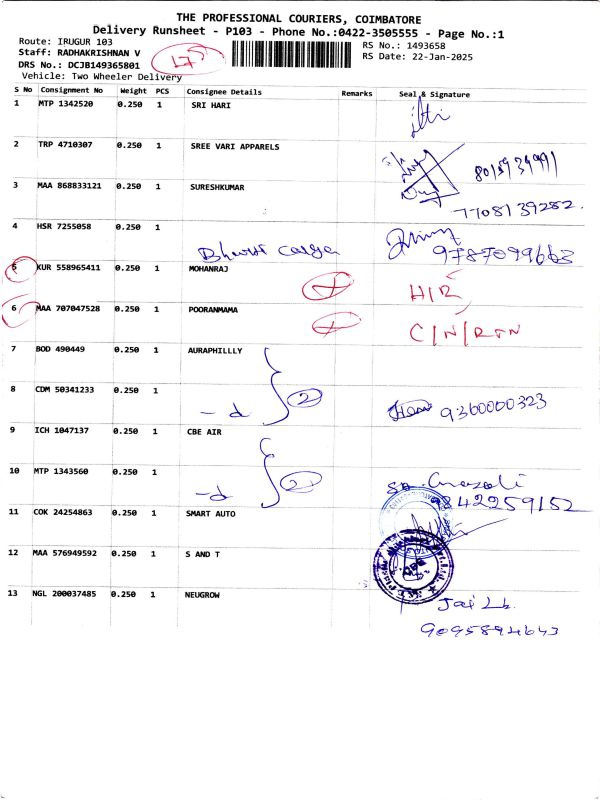 THE PROFESSIONAL COURIERS, COIMBATORE
Delivery Runsheet - P103 - Phone No.:0422-3505555 - Page No.:1
Route: IRUGUR 103
RS No.: 1493658
Staff: RADHAKRISHNAN V
RS Date: 22-Jan-2025
DRS No.: DCJB149365801
Vehicle: Two Wheeler Delivery
S No Consignment No Weight PCS Consignee Details Remarks Seal & Signature
1 MTP 1342520 0.250 1 SRI HARI
2 TRP 4710307 0.250 1 SREE VARI APPARELS
3 MAA 868833121 0.250 1 SURESHKUMAR
77081 39282.
4 HSR 7255058 0.250 1
Bharat Cargo 9787099663
5 KUR 558965411 0.250 1 MOHANRAJ
H/R
6 MAA 707047528 0.250 1 POORANMAMA
C/N/RTN
7 BOD 490449 0.250 1 AURAPHILLLY
8 CDM 50341233 0.250 1
-d 2 9360000323
9 ICH 1047137 0.250 1 CBE AIR
10 MTP 1343560 0.250 1
-d 2
9842259152
11 COK 24254863 0.250 1 SMART AUTO
12 MAA 576949592 0.250 1 S AND T
13 NGL 200037485 0.250 1 NEUGROW
9095894643